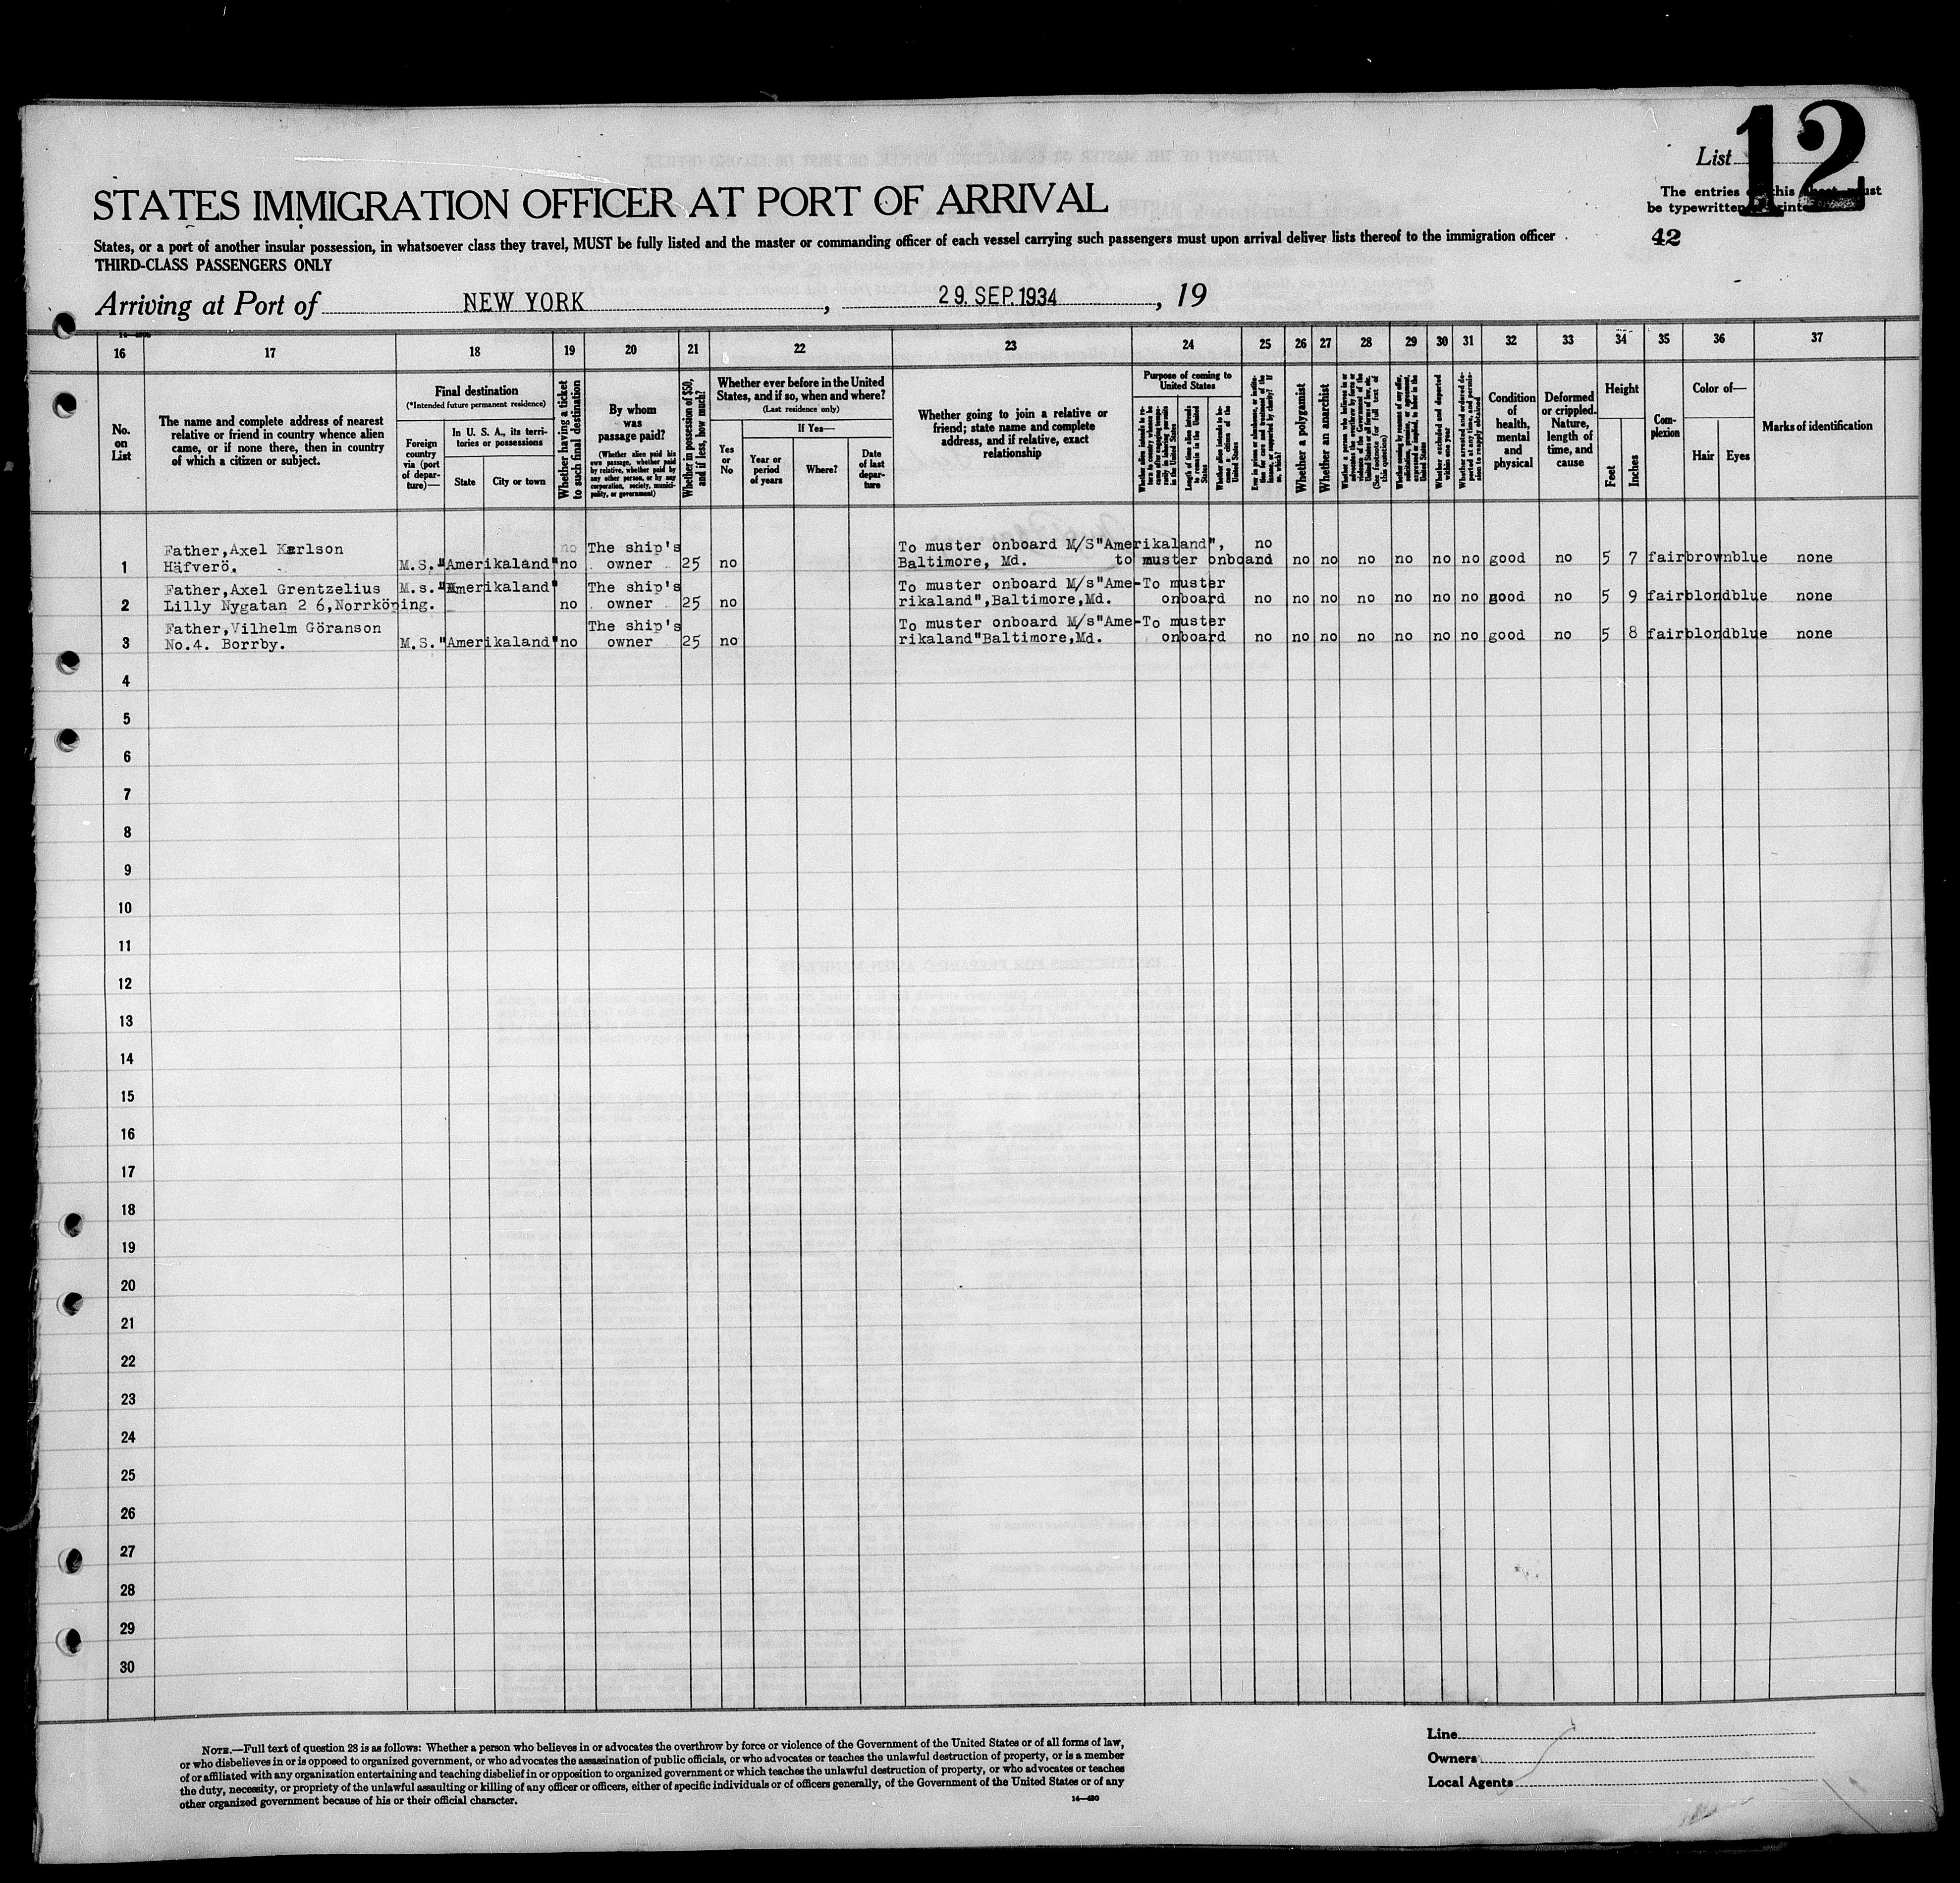 12
List
The entries this must
be typewritten
42
STATES IMMIGRATION OFFICER AT PORT OF ARRIVAL
States, or a port of another insular possession, in whatsoever class they travel, MUST be fully listed and the master or commanding officer of each vessel carrying such passengers must upon arrival deliver lists thereof to the immigration officer
THIRD-CLASS PASSENGERS ONLY
Arriving at Port of NEW YORK, 29. SEP. 1934, 19
16 17 18 19 20 21 22 23 24 25 26 27 28 29 30 31 32 33 34 35 36 37
No. on List
The name and complete address of nearest
relative or friend in country whence alien
came, or if none there, then in country
of which a citizen or subject.
Final destination
(*Intended future permanent residence)
Foreign country via (port of departure)—
In U. S. A., its territories or possessions
State
City or town
Whether having a ticket to such final destination
By whom was passage paid?
(Whether alien paid his own passage, whether paid by relative, whether paid by any other person, or by any corporation, society, municipality, or government)
Whether in possession of $50, and if less, how much?
Whether ever before in the United
States, and if so, when and where?
(Last residence only)
Yes or No
If Yes—
Year or period of years
Where?
Date of last departure
Whether going to join a relative or
friend; state name and complete
address, and if relative, exact
relationship
Purpose of coming to
United States
Length of time alien intends to remain in the United States
Whether alien intends to become a citizen of the United States
Whether a polygamist
Whether an anarchist
(See footnote for full text of this question)
Whether excluded and deported within one year
Condition of health, mental and physical
Deformed or crippled. Nature, length of time, and cause
Height
Feet
Inches
Complexion
Color of—
Hair
Eyes
Marks of identification
Father, Axel Karlson no The ship's To muster onboard M/S"Amerikaland", no
1 Häfverö. M.S."Amerikaland" no owner 25 no Baltimore, Md. to muster onboard no no no no no no good no 5 7 fair brown blue none
Father, Axel Grentzelius M.s."Amerikaland" The ship's To muster onboard M/s"Ame- To muster
2 Lilly Nygatan 2 6, Norrköping. no owner 25 no rikaland",Baltimore,Md. onboard no no no no no no no good no 5 9 fair blond blue none
Father, Vilhelm Göranson The ship's To muster onboard M/s"Ame- To muster
3 No.4. Borrby. M.S."Amerikaland" no owner 25 no rikaland"Baltimore,Md. onboard no no no no no no no good no 5 8 fair blond blue none
4
5
6
7
8
9
10
11
12
13
14
15
16
17
18
19
20
21
22
23
24
25
26
27
28
29
30
NOTE.—Full text of question 28 is as follows: Whether a person who believes in or advocates the overthrow by force or violence of the Government of the United States or of all forms of law,
or who disbelieves in or is opposed to organized government, or who advocates the assassination of public officials, or who advocates or teaches the unlawful destruction of property, or is a member
of or affiliated with any organization entertaining and teaching disbelief in or opposition to organized government or which teaches the unlawful destruction of property, or who advocates or teaches
the duty, necessity, or propriety of the unlawful assaulting or killing of any officer or officers, either of specific individuals or of officers generally, of the Government of the United States or of any
other organized government because of his or their official character.
14—430
Line
Owners
Local Agents